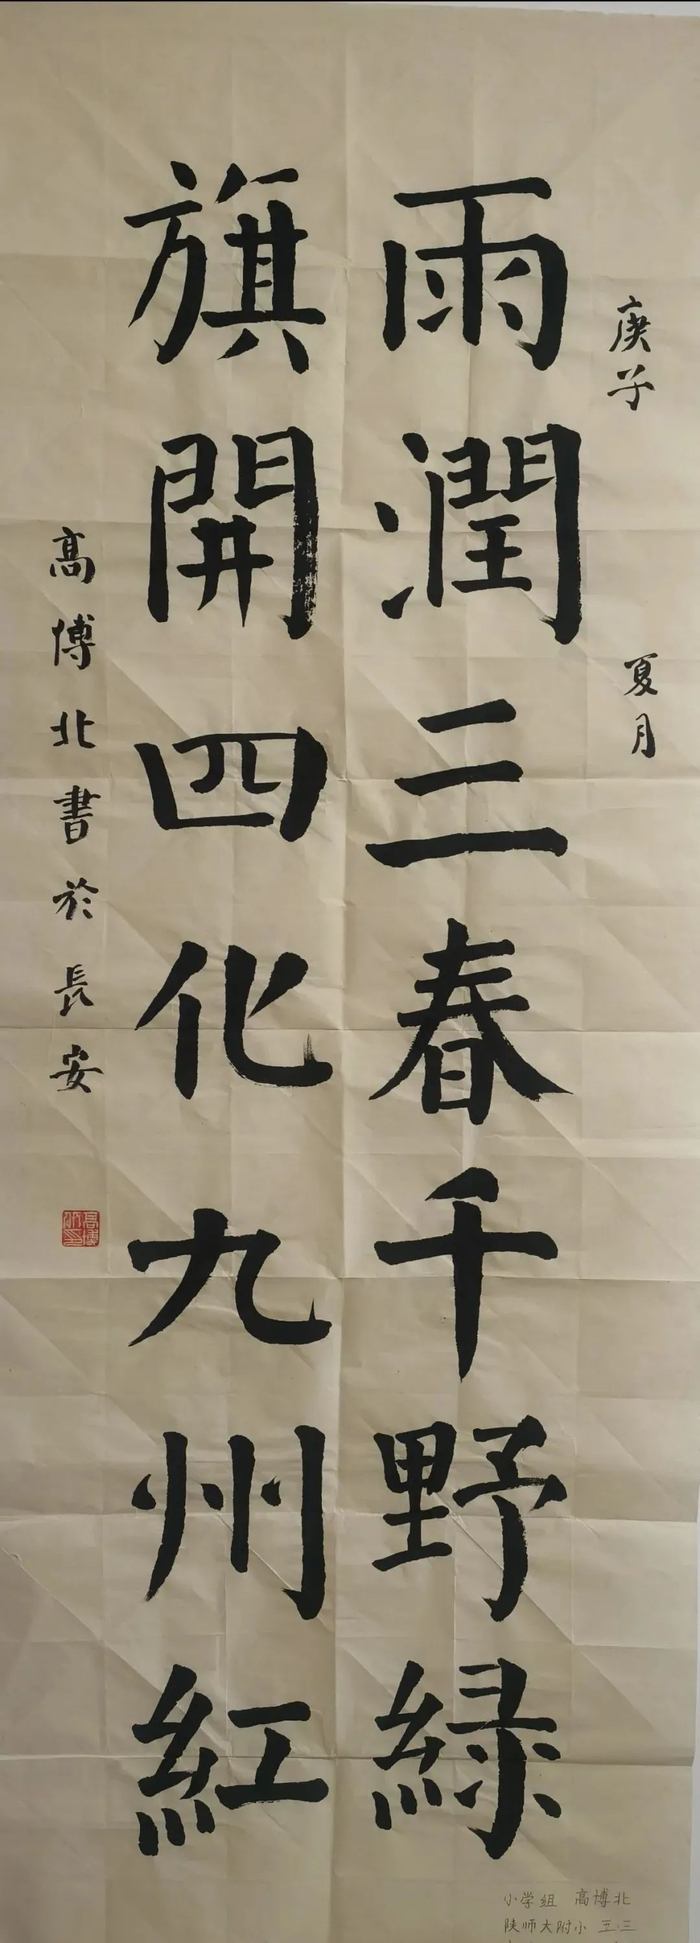 庚子 夏月
雨潤三春千野緑
旗開四化九州紅
高博北書於長安
小学组 高博北
陕师大附小 五.三